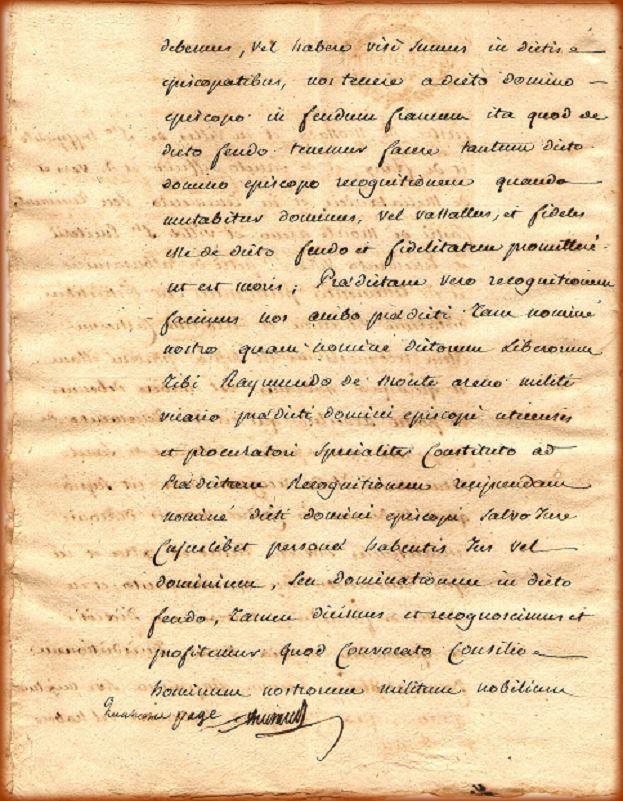 debemus, vel habere visi sumus in dictis
episcopatibus, nos tenere a dicto domino
episcopo in feudum francum ita quod de
dicto feudo tenemur facere tantum dicto
domino episcopo recognitionem quando
mutabitur dominus, vel vassallus, et fideles
esse de dicto feudo et fidelitatem promittere
ut est moris; Prædictam vero recognitionem
facimus nos ambo prædicti Tam nominé
nostro quam nominé dictorum Liberorum
Tibi Raymundo de Monte areno militi
vicario prædicti domini episcopi uticensis
et procuratori specialiter Constituto ad
Prædictam Recognitionem recipiendam
nominé dicti domini episcopi salvo Jure
Cujuslibet personæ habentis Jus vel
dominium, seu Dominationem in dicto
feudo, Tamen dicimus et recognoscimus et
profitemur quod Convocato Consilio
hominum nostrorum militum nobilium
page